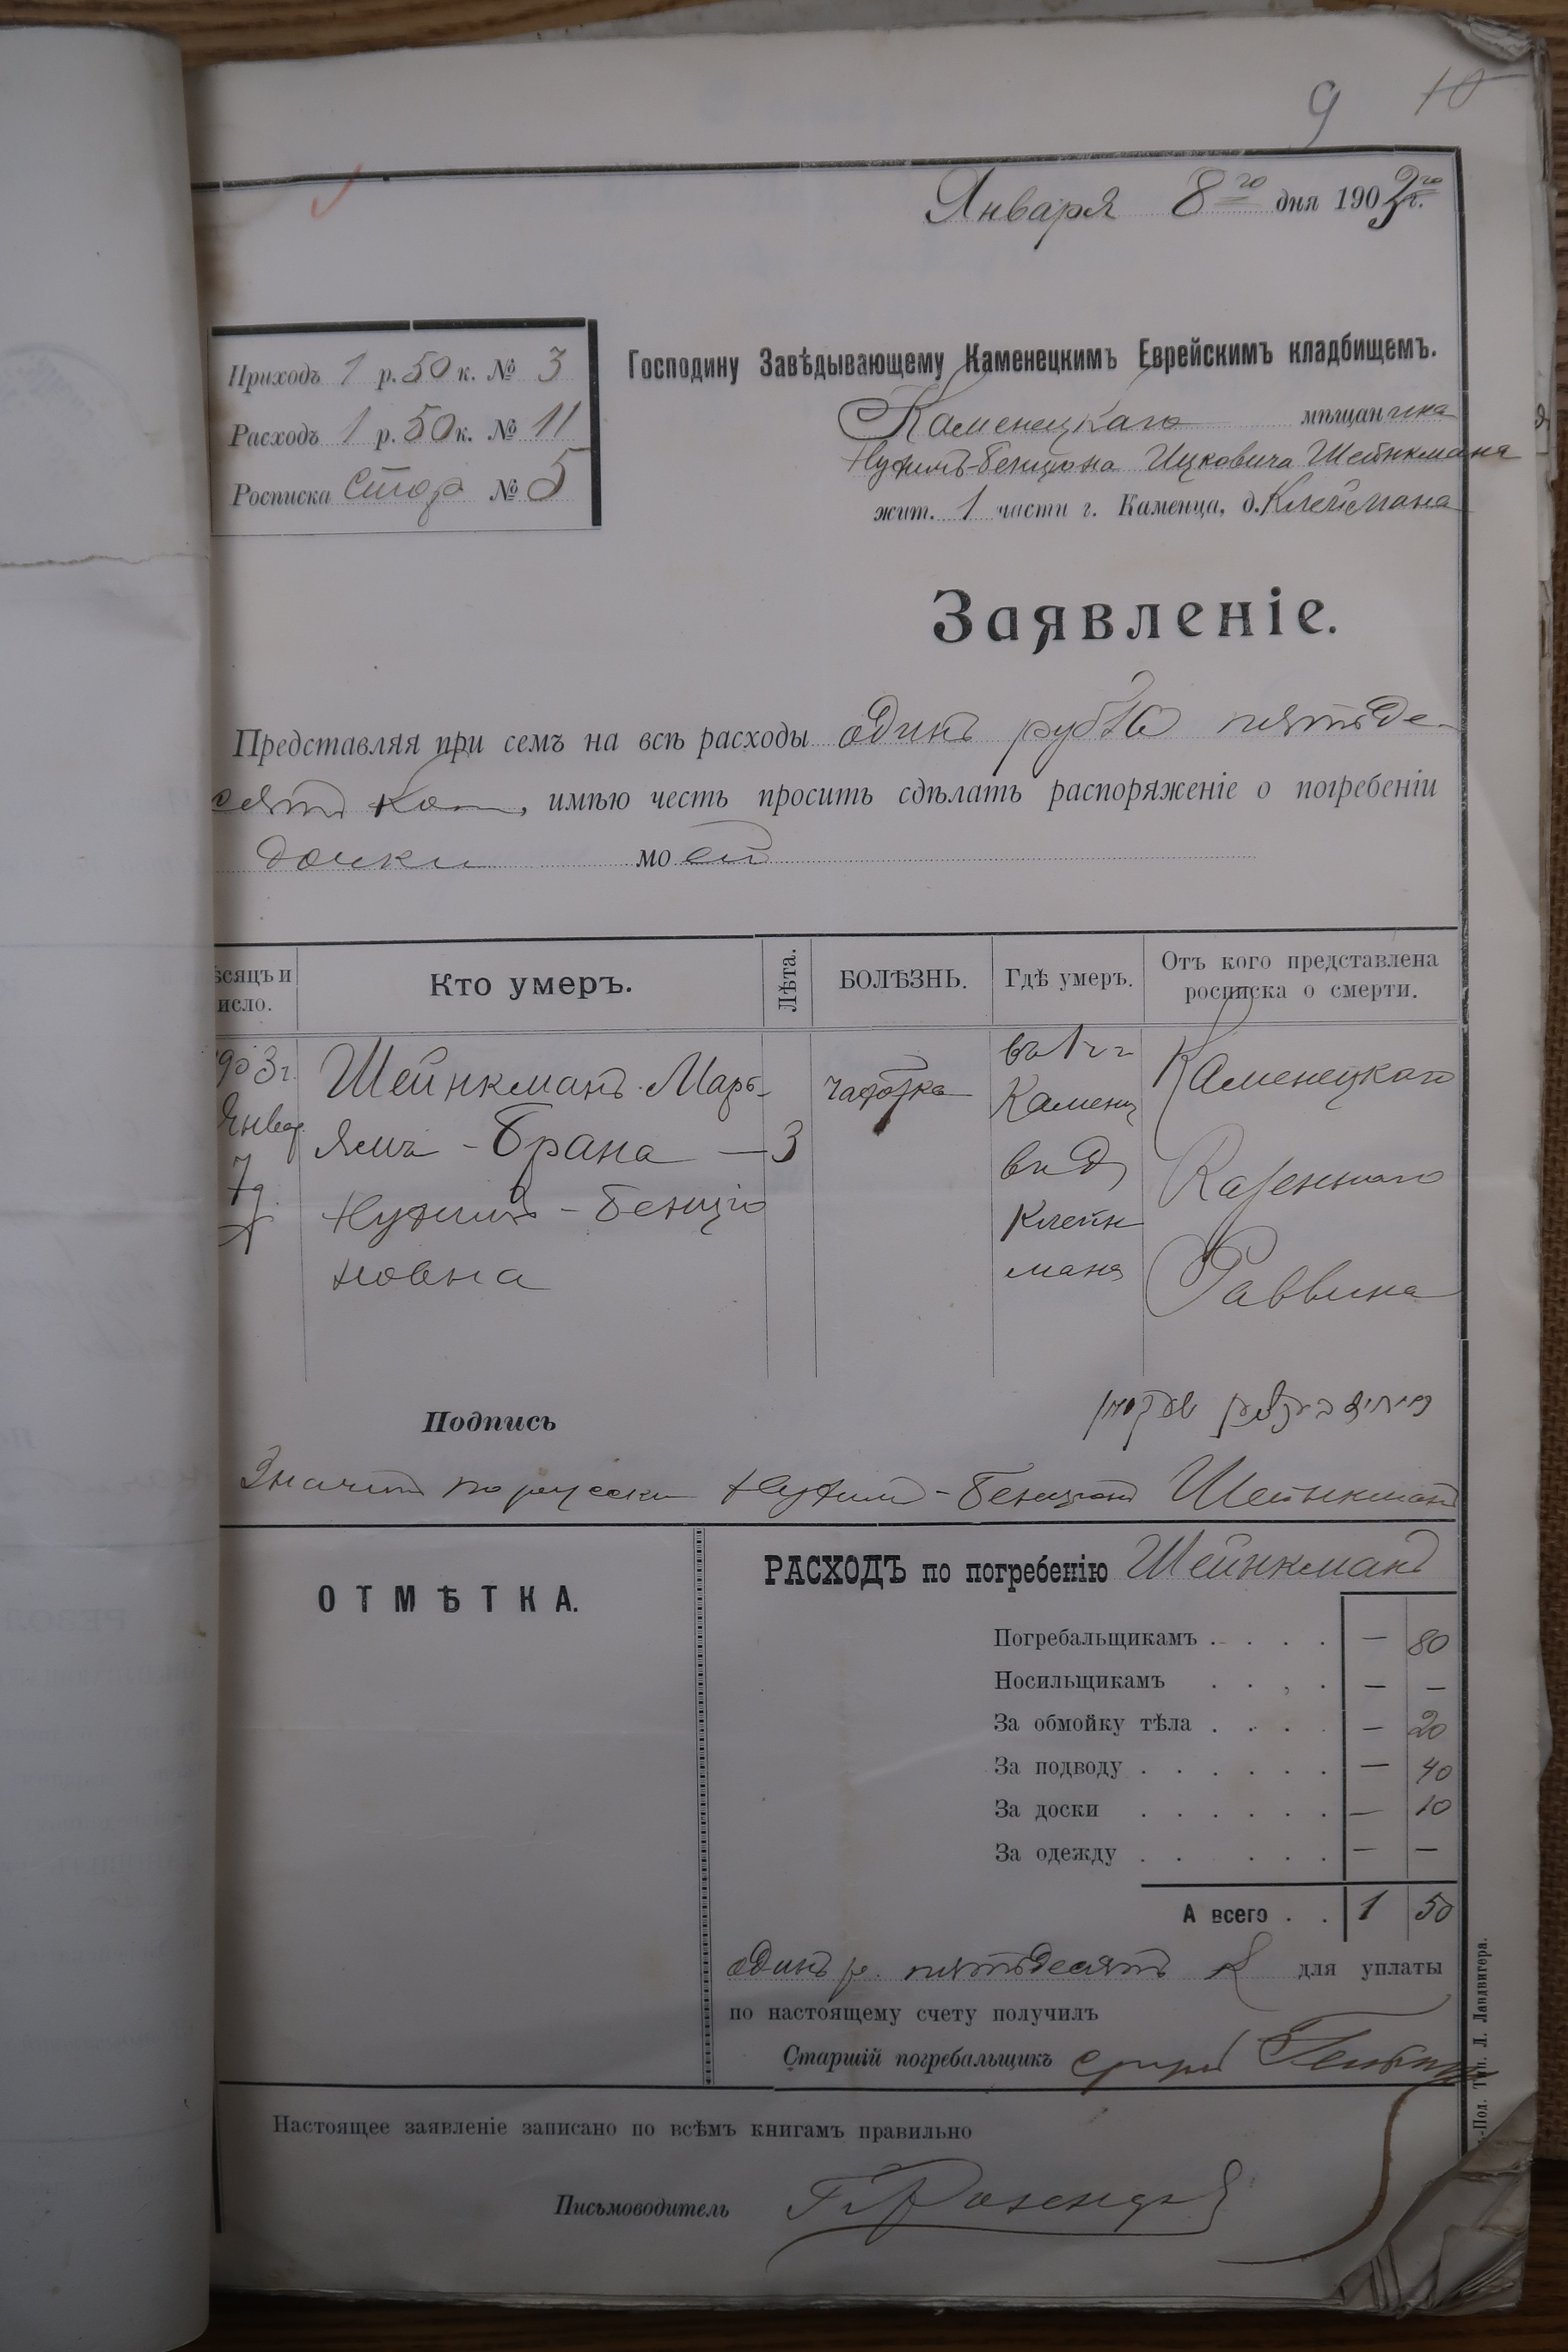 9 10
Января 8го дня 1903го г.
Приходъ 1 р. 50 к. № 3
Расходъ 1 р. 50 к. № 11
Росписка Стор № 5
Господину Завѣдывающему Каменецкимъ Еврейскимъ кладбищемъ.
Каменецкаго мѣщанина
Нухимъ-Бенциона Ицковича Шейнкмана
жит. 1 части г. Каменца, д. Клеймана
Заявленіе.
Представляя при семъ на всѣ расходы одинъ рубль пятьде-
сятъ коп, имѣю честь просить сдѣлать распоряженіе о погребеніи
дочки моей
ѣсяцъ и
исло.
Кто умеръ.
Лѣта.
БОЛѢЗНЬ.
Гдѣ умеръ.
Отъ кого представлена
росписка о смерти.
903г.
Январ
7д.
Шейнкманъ Марь-
ямъ - Брана
Нухимъ - Бенціо
новна
3
чахотка
въ 1 ч г
Каменц
въ д
Клейн
мана
Каменецкаго
Казеннаго
Раввина
Подпись
Значитъ по русски Нухим - Бенционъ Шейнкманъ
ОТМѢТКА.
РАСХОДЪ по погребенію Шейнкманъ
Погребальщикамъ . . . . — 80
Носильщикамъ . . . . — —
За обмойку тѣла . . . . — 20
За подводу . . . . . . — 40
За доски . . . . . . — 10
За одежду . . . . . . — —
А всего . . 1 50
одинъ р. пятьдесятъ к для уплаты
по настоящему счету получилъ
Старшій погребальщикъ
Настоящее заявленіе записано по всѣмъ книгамъ правильно
Письмоводитель
.-Под. Тип. Л. Ландвигера.